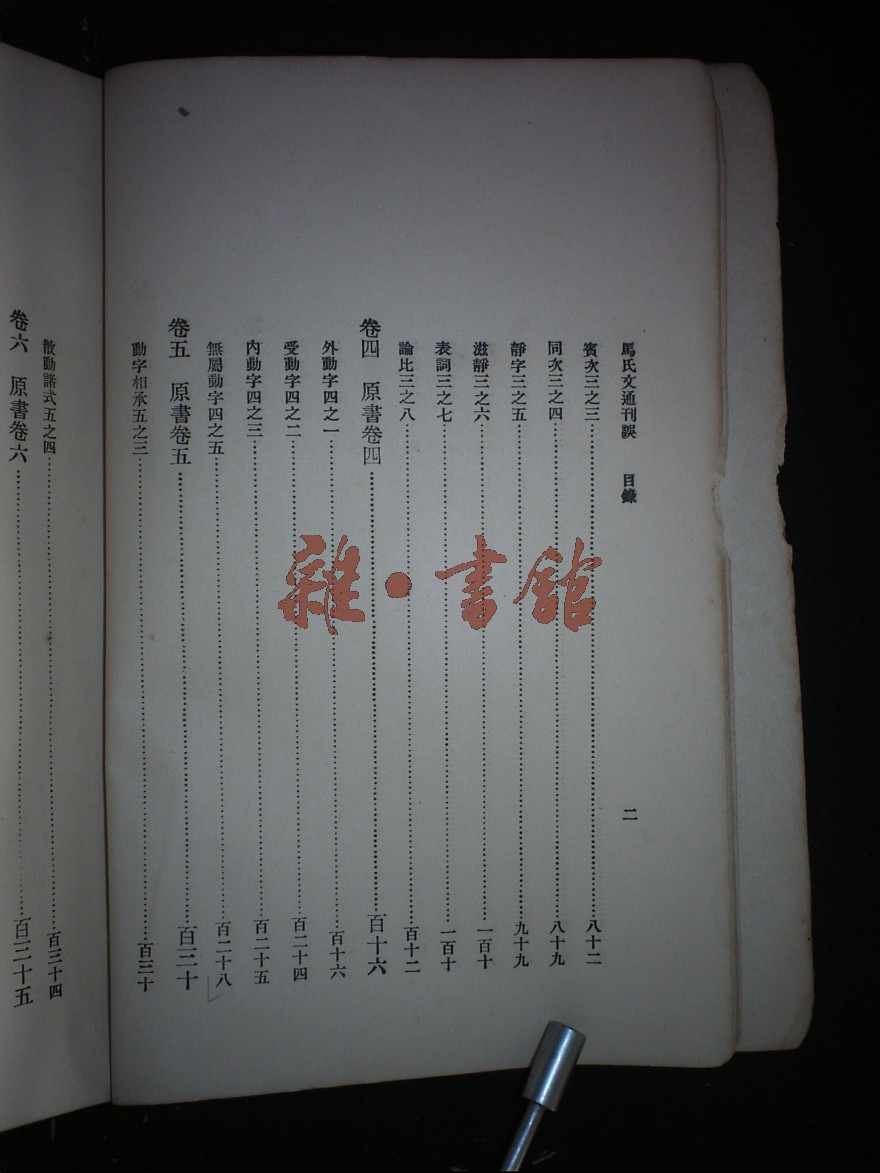 馬氏文通刊誤 目錄 二
賓次三之三 八十二
同次三之四 八十九
靜字三之五 九十九
滋靜三之六 一百十
表詞三之七 一百十
論比三之八 百十二
卷四 原書卷四 百十六
外動字四之一 百十六
受動字四之二 百二十四
內動字四之三 百二十五
無屬動字四之五 百二十八
卷五 原書卷五 百三十
動字相承五之三 百三十
散動諸式五之四 百三十四
卷六 原書卷六 百三十五
雜·書館